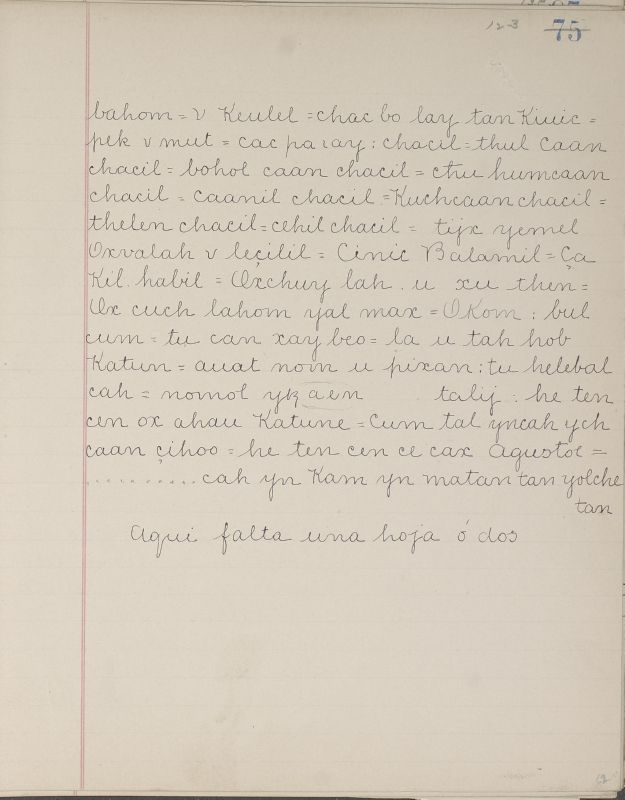 123 75
bahom = v Keulel = chac bo lay tan Kiuic =
pek v mut = cac pa ray : chacil = thul Caan
chacil = bohol caan chacil = chu humcaan
chacil = caanil chacil = Kuchcaan chacil =
thelen chacil = cehil chacil = tijx yemel
Oxvalah v leçilil = Cinic Balamil = Ça
Kil. habil = Oxchuy lah . u xu then =
Ox cuch lahom yal max = OKom : bul
cum = tu can xay beo = la u tah hob
Katun = auat nom u pixan : tu helebal
cah = nomol yk aen talij : he ten
cen ox ahau Katune = Cum tal yncah ych
caan çihoo = he ten cen ce cax Agustoe =
........... cah yn Kam yn matan tan yolche
tan
Aqui falta una hoja ó dos